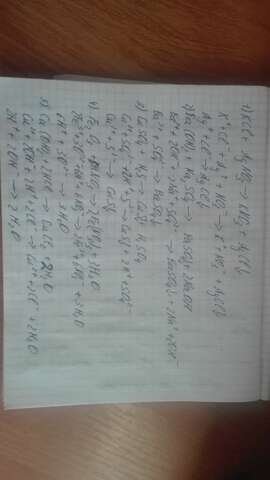 1) KCl + AgNO₃ → KNO₃ + AgCl↓
K⁺ + Cl⁻ + Ag⁺ + NO₃⁻ → K⁺ + NO₃⁻ + AgCl↓
Ag⁺ + Cl⁻ → AgCl↓
2) Ba(OH)₂ + Na₂SO₄ → BaSO₄ + 2NaOH
Ba²⁺ + 2OH⁻ + 2Na⁺ + SO₄²⁻ → BaSO₄↓ + 2Na⁺ + 2OH⁻
Ba²⁺ + SO₄²⁻ → BaSO₄↓
3) CuSO₄ + H₂S → CuS↓ + H₂SO₄
Cu²⁺ + SO₄²⁻ + 2H⁺ + S²⁻ → CuS↓ + 2H⁺ + SO₄²⁻
Cu²⁺ + S²⁻ → CuS↓
4) Fe₂O₃ + 6HNO₃ → 2Fe(NO₃)₃ + 3H₂O
2Fe³⁺ + 3O²⁻ + 6H⁺ + 6NO₃⁻ → 2Fe³⁺ + 6NO₃⁻ + 3H₂O
6H⁺ + 3O²⁻ → 3H₂O
5) Ca(OH)₂ + 2HCl → CaCl₂ + 2H₂O
Ca²⁺ + 2OH⁻ + 2H⁺ + 2Cl⁻ → Ca²⁺ + 2Cl⁻ + 2H₂O
2H⁺ + 2OH⁻ → 2H₂O